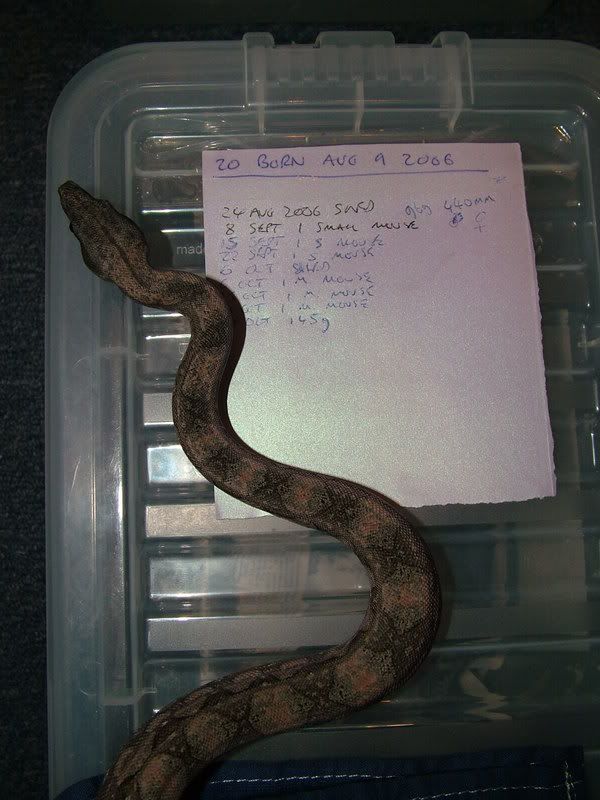 20 BORN AUG 9 2006
24 AUG 2006 SHED 96g 440MM
8 SEPT 1 SMALL MOUSE
15 SEPT 1 S MOUSE
22 SEPT 1 S MOUSE
6 OCT SHED
OCT 1 M MOUSE
OCT 1 M MOUSE
OCT 1 M MOUSE
OCT 145g
made